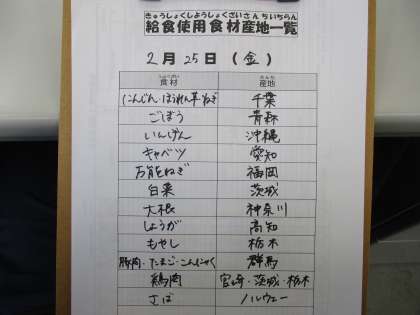 きゅうしょくしようしょくざいさんちいちらん
給食使用食材産地一覧
2月25日(金)
しょくざい さんち
食材 産地
にんじん・ほうれん草・ねぎ 千葉
ごぼう 青森
いんげん 沖縄
キャベツ 愛知
万能ねぎ 福岡
白菜 茨城
大根 神奈川
しょうが 高知
もやし 栃木
豚肉・たまご・こんにゃく 群馬
鶏肉 宮崎・茨城・栃木
さば ノルウェー